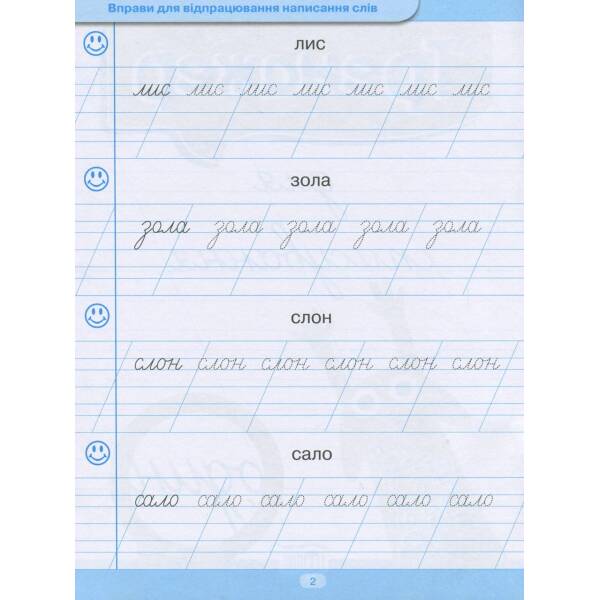 Вправи для відпрацювання написання слів
лис
лис лис лис лис лис лис лис
зола
зола зола зола зола зола
слон
слон слон слон слон слон слон
сало
сало сало сало сало сало сало
2